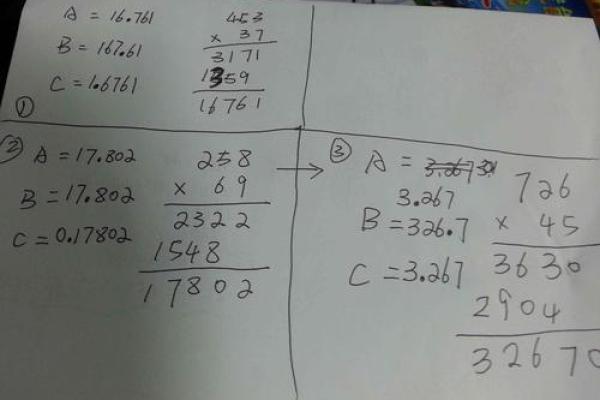 A = 16.761
B = 167.61
C = 1.6761
①
453
× 37
3171
1359
16761
②
A = 17.802
B = 17.802
C = 0.17802
258
× 69
2322
1548
17802
③
A =
3.267
B = 326.7
C = 3.267
726
× 45
3630
2904
32670